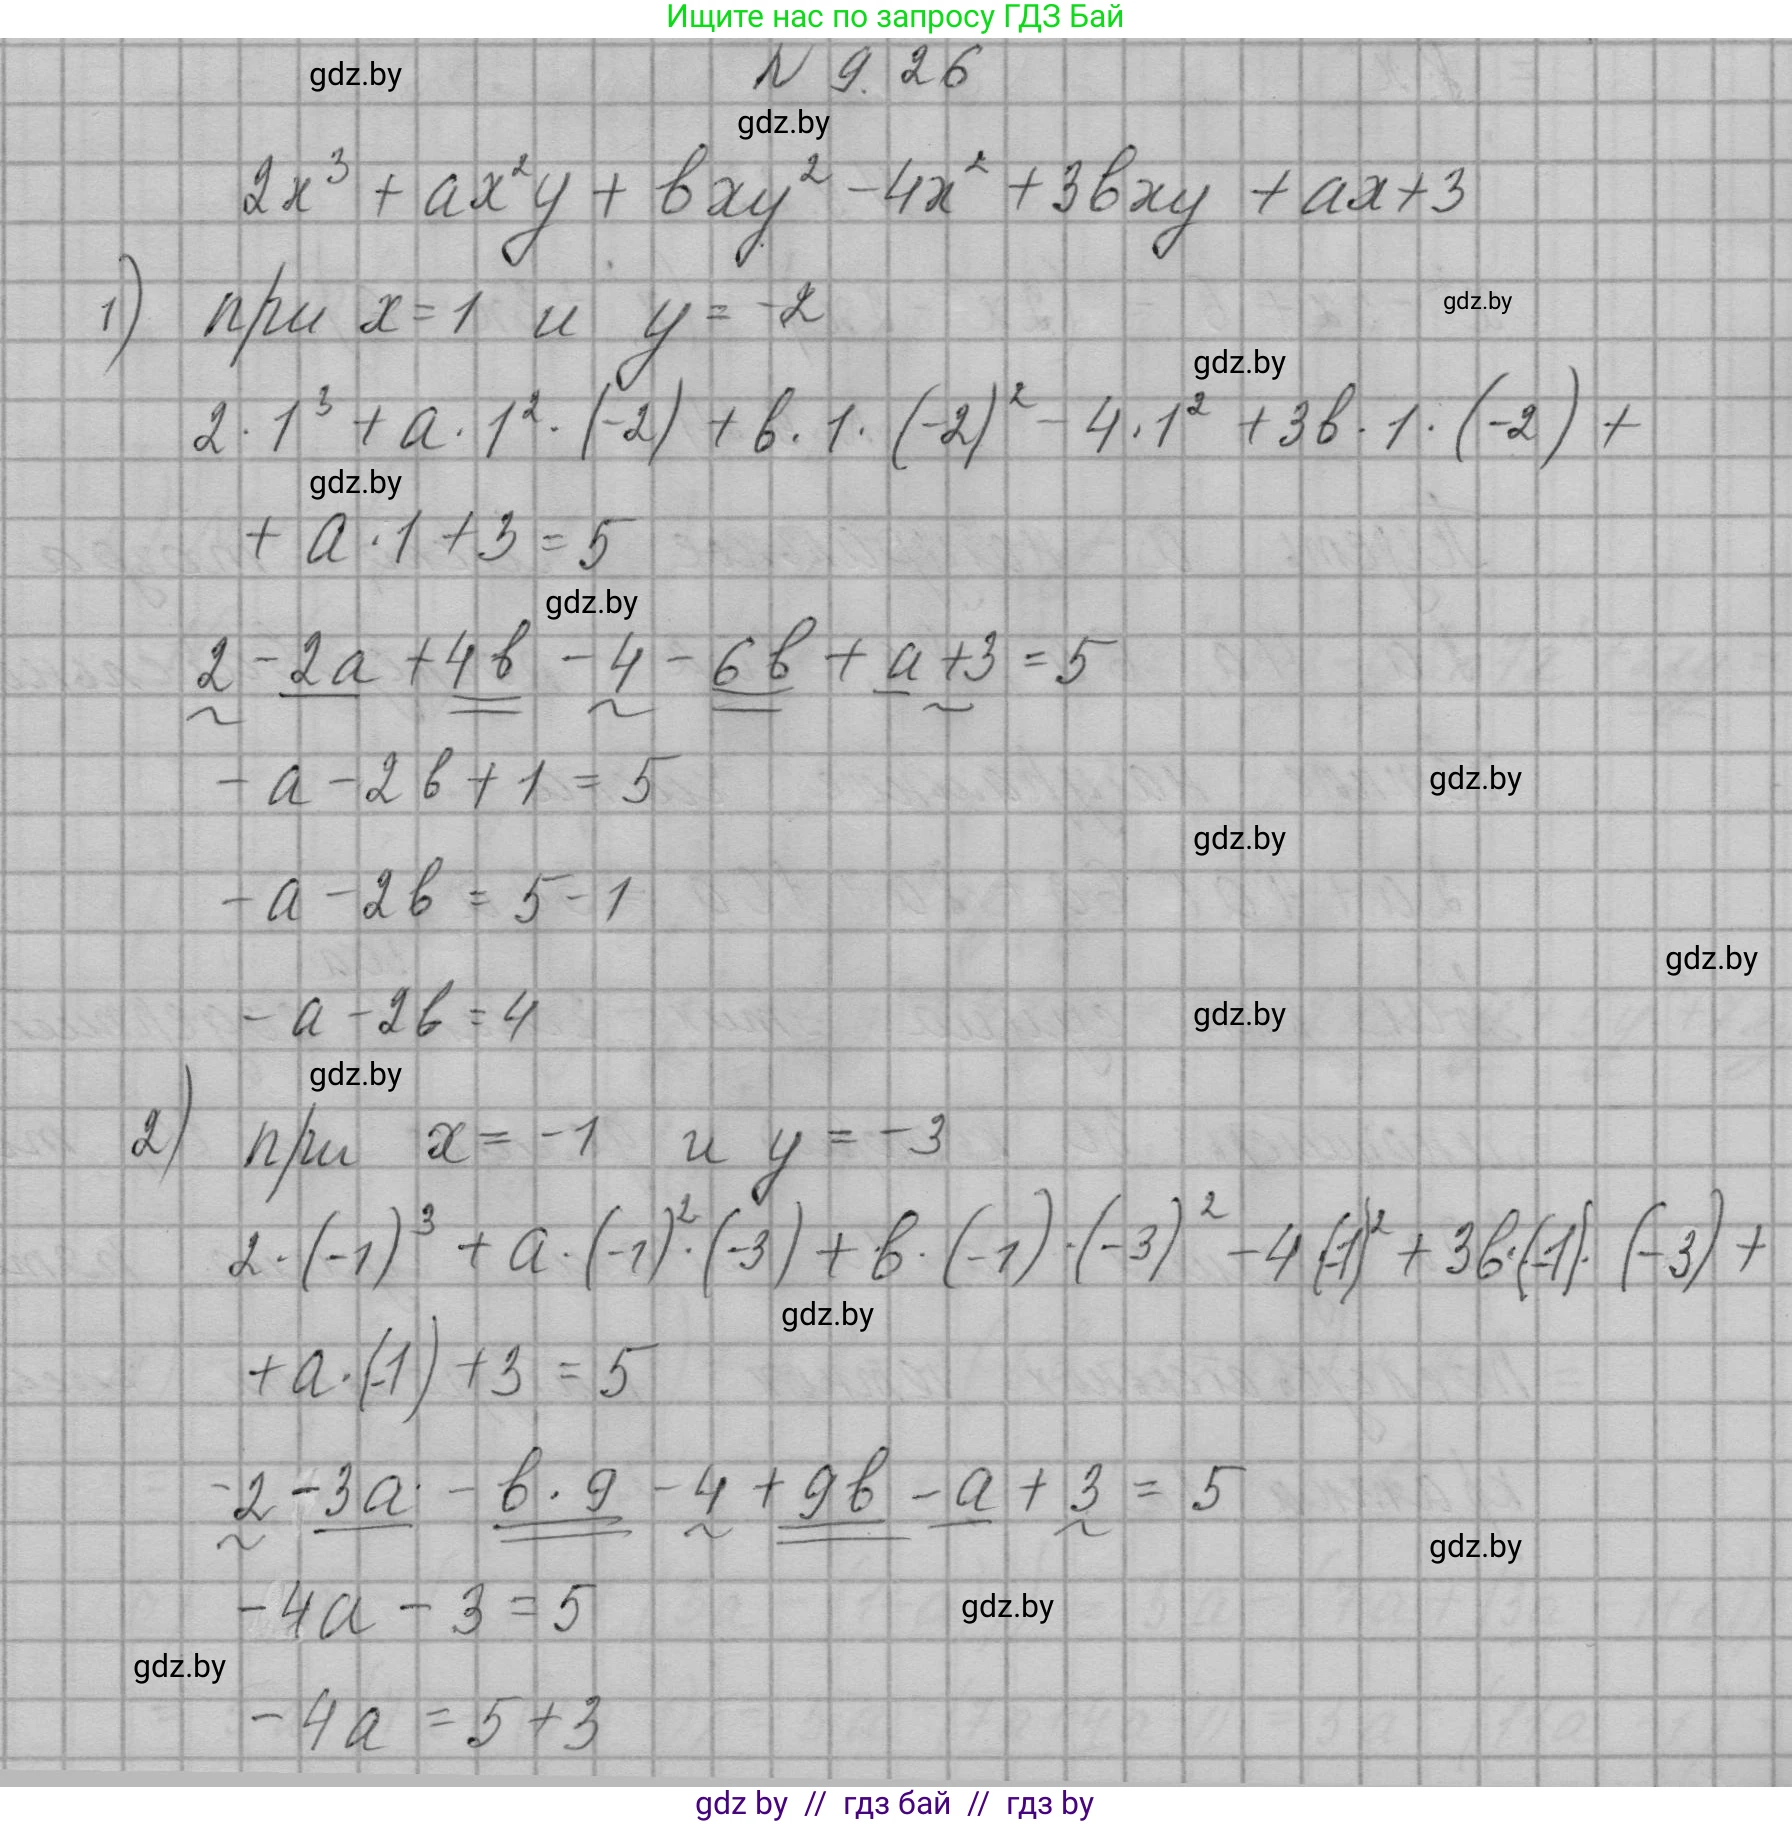 Ищите нас по запросу ГДЗ Бай
gdz.by
N 9.26
gdz.by
2x³ + ax²y + bxy² - 4x² + 3bxy + ax + 3
1) при x = 1 и y = -2
gdz.by
gdz.by
2 · 1³ + a · 1² · (-2) + b · 1 · (-2)² - 4 · 1² + 3b · 1 · (-2) +
gdz.by
+ a · 1 + 3 = 5
gdz.by
2 - 2a + 4b - 4 - 6b + a + 3 = 5
- a - 2b + 1 = 5
gdz.by
gdz.by
- a - 2b = 5 - 1
gdz.by
- a - 2b = 4
gdz.by
gdz.by
2) при x = -1 и y = -3
2 · (-1)³ + a · (-1)² · (-3) + b · (-1) · (-3)² - 4 (-1)² + 3b · (-1) · (-3) +
gdz.by
+ a · (-1) + 3 = 5
-2 - 3a - b · 9 - 4 + 9b - a + 3 = 5
gdz.by
- 4a - 3 = 5
gdz.by
gdz.by
- 4a = 5 + 3
gdz by // гдз бай // гдз by